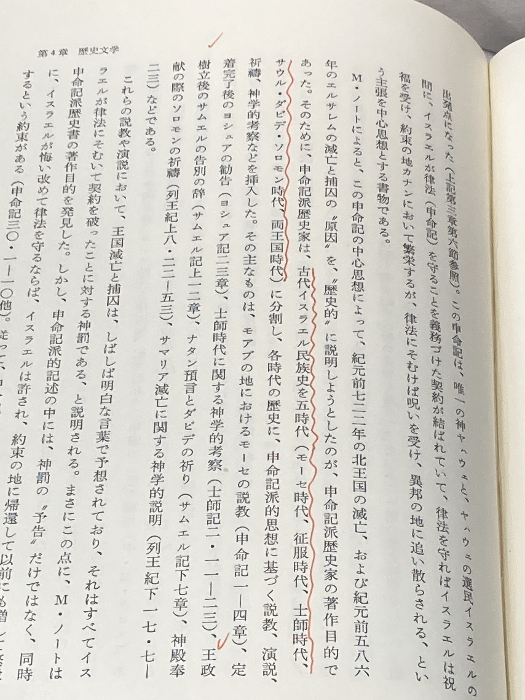 第4章　歴史文学
出発点になった（上記第三章第六節参照）。この申命記は、唯一の神ヤハウェと、ヤハウェの選民イスラエルの
間に、イスラエルが律法（申命記）を守ることを義務づけた契約が結ばれていて、律法を守ればイスラエルは祝
福を受け、約束の地カナンにおいて繁栄するが、律法にそむけば呪いを受け、異邦の地に追い散らされる、とい
う主張を中心思想とする書物である。
M・ノートによると、この申命記の中心思想によって、紀元前七二二年の北王国の滅亡、および紀元前五八六
年のエルサレムの滅亡と捕囚の〝原因〟を、〝歴史的〟に説明しようとしたのが、申命記派歴史家の著作目的で
あった。そのために、申命記派歴史家は、古代イスラエル民族史を五時代（モーセ時代、征服時代、士師時代、
サウル・ダビデ・ソロモン時代、両王国時代）に分割し、各時代の歴史に、申命記派的思想に基づく説教、演説、
祈禱、神学的考察などを挿入した。その主なものは、モアブの地におけるモーセの説教（申命記一—四章）、定
着完了後のヨシュアの勧告（ヨシュア記二三章）、士師時代に関する神学的考察（士師記二・一一—二三）、王政
樹立後のサムエルの告別の辞（サムエル記上一二章）、ナタン預言とダビデの祈り（サムエル記下七章）、神殿奉
献の際のソロモンの祈禱（列王紀上八・二二—五三）、サマリア滅亡に関する神学的説明（列王紀下一七・七—
二三）などである。
これらの説教や演説において、王国滅亡と捕囚は、しばしば明白な言葉で予想されており、それはすべてイス
ラエルが律法にそむいて契約を破ったことに対する神罰である、と説明される。まさにこの点に、M・ノートは
申命記派歴史書の著作目的を発見した。しかし、申命記派的記述の中には、神罰の〝予告〟だけではなく、同時
に、イスラエルが悔い改めて律法を守るならば、イスラエルは許され、約束の地に帰還して以前にも増して
するという約束がある（申命記三〇・一—一〇他）。従って、